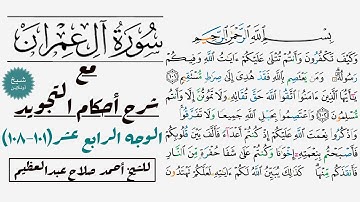 سورة آل عمران
مع
شيخ
أونلاين
شرح أحكام التجويد
الوجه الرابع عشر (١٠١-١٠٨)
للشيخ أحمد صلاح عبدالعظيم
بِسْمِ اللَّهِ الرَّحْمَٰنِ الرَّحِيمِ
وَكَيْفَ تَكْفُرُونَ وَأَنتُمْ تُتْلَىٰ عَلَيْكُمْ ءَايَٰتُ اللَّهِ وَفِيكُمْ
رَسُولُهُۥ وَمَن يَعْتَصِم بِاللَّهِ فَقَدْ هُدِىَ إِلَىٰ صِرَٰطٍ مُّسْتَقِيمٍ
يَٰٓأَيُّهَا الَّذِينَ ءَامَنُوا اتَّقُوا اللَّهَ حَقَّ تُقَاتِهِۦ وَلَا تَمُوتُنَّ إِلَّا وَأَنتُم
مُّسْلِمُونَ وَاعْتَصِمُوا بِحَبْلِ اللَّهِ جَمِيعًا وَلَا تَفَرَّقُوا
وَاذْكُرُوا نِعْمَتَ اللَّهِ عَلَيْكُمْ إِذْ كُنتُمْ أَعْدَآءً فَأَلَّفَ بَيْنَ قُلُوبِكُمْ
فَأَصْبَحْتُم بِنِعْمَتِهِۦٓ إِخْوَٰنًا وَكُنتُمْ عَلَىٰ شَفَا حُفْرَةٍ مِّنَ النَّارِ
فَأَنقَذَكُم مِّنْهَا كَذَٰلِكَ يُبَيِّنُ اللَّهُ لَكُمْ ءَايَٰتِهِۦ لَعَلَّكُمْ تَهْتَدُونَ